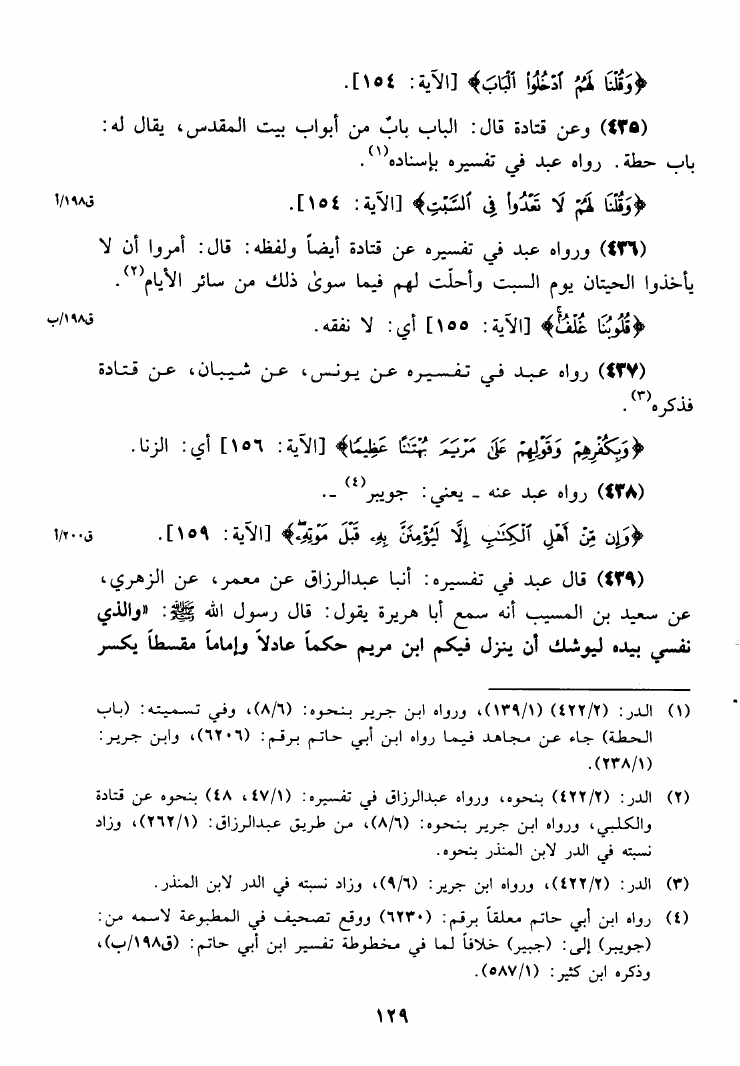 ﴿وَقُلْنَا لَهُمُ ادْخُلُوا الْبَابَ﴾ [الآية: ١٥٤].
(٤٣٥) وعن قتادة قال: الباب بابٌ من أبواب بيت المقدس، يقال له:
باب حطة. رواه عبد في تفسيره بإسناده(١).
﴿وَقُلْنَا لَهُمْ لَا تَعْدُوا فِي السَّبْتِ﴾ [الآية: ١٥٤].
ق١٩٨/أ
(٤٣٦) ورواه عبد في تفسيره عن قتادة أيضاً ولفظه: قال: أمروا أن لا
يأخذوا الحيتان يوم السبت وأحلّت لهم فيما سوىٰ ذلك من سائر الأيام(٢).
﴿قُلُوبُنَا غُلْفٌ﴾ [الآية: ١٥٥] أي: لا نفقه.
ق١٩٨/ب
(٤٣٧) رواه عبد في تفسيره عن يونس، عن شيبان، عن قتادة
فذكره(٣).
﴿وَبِكُفْرِهِمْ وَقَوْلِهِمْ عَلَىٰ مَرْيَمَ بُهْتَٰنًا عَظِيمًا﴾ [الآية: ١٥٦] أي: الزنا.
(٤٣٨) رواه عبد عنه ـ يعني: جويبر(٤) ـ.
﴿وَإِن مِّنْ أَهْلِ الْكِتَٰبِ إِلَّا لَيُؤْمِنَنَّ بِهِۦ قَبْلَ مَوْتِهِۦ﴾ [الآية: ١٥٩].
ق٢٠٠/أ
(٤٣٩) قال عبد في تفسيره: أنبا عبدالرزاق عن معمر، عن الزهري،
عن سعيد بن المسيب أنه سمع أبا هريرة يقول: قال رسول الله ﷺ: «والذي
نفسي بيده ليوشك أن ينزل فيكم ابن مريم حكماً عادلاً وإماماً مقسطاً يكسر
(١) الدر: (٤٢٢/٢) (١٣٩/١)، ورواه ابن جرير بنحوه: (٨/٦)، وفي تسميته: (باب
الحطة) جاء عن مجاهد فيما رواه ابن أبي حاتم برقم: (٦٢٠٦)، وابن جرير:
(٢٣٨/١).
(٢) الدر: (٤٢٢/٢) بنحوه، ورواه عبدالرزاق في تفسيره: (٤٧/١، ٤٨) بنحوه عن قتادة
والكلبي، ورواه ابن جرير بنحوه: (٨/٦)، من طريق عبدالرزاق: (٢٦٢/١)، وزاد
نسبته في الدر لابن المنذر بنحوه.
(٣) الدر: (٤٢٢/٢)، ورواه ابن جرير: (٩/٦)، وزاد نسبته في الدر لابن المنذر.
(٤) رواه ابن أبي حاتم معلقاً برقم: (٦٢٣٠) ووقع تصحيف في المطبوعة لاسمه من:
(جويبر) إلى: (جبير) خلافاً لما في مخطوطة تفسير ابن أبي حاتم: (ق١٩٨/ب)،
وذكره ابن كثير: (٥٨٧/١).
١٢٩